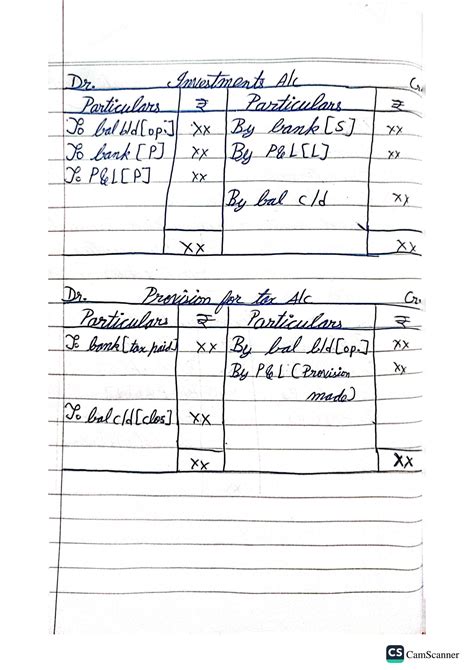 Dr. Investments A/c Cr.
Particulars ₹ Particulars ₹
To bal b/d [op.] xx By bank [S] xx
To bank [P] xx By P&L [L] xx
To P&L [P] xx
By bal c/d xx
xx xx
Dr. Provision for tax A/c Cr.
Particulars ₹ Particulars ₹
To bank [tax paid] xx By bal b/d [op.] xx
By P&L (Provision xx
made)
To bal c/d [clos] xx
xx xx
CS CamScanner